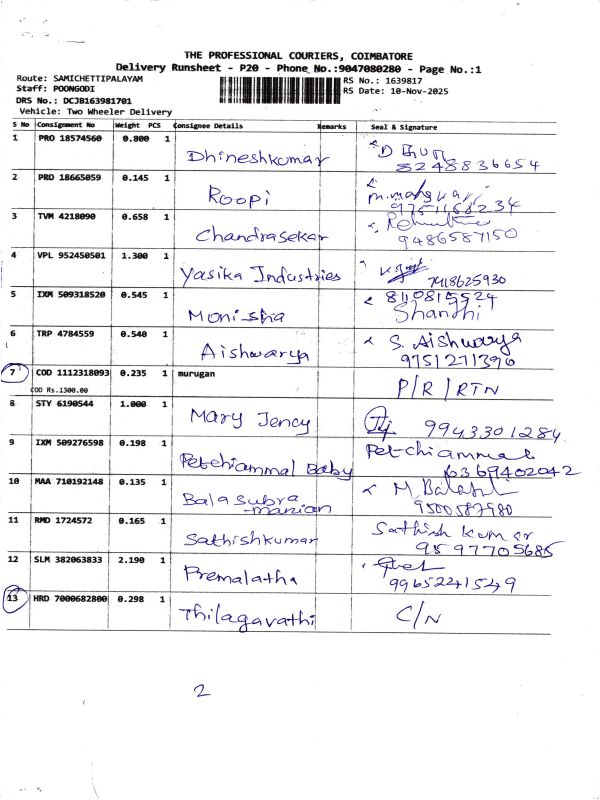 THE PROFESSIONAL COURIERS, COIMBATORE
Delivery Runsheet - P20 - Phone No.:9047080280 - Page No.:1
Route: SAMICHETTIPALAYAM RS No.: 1639817
Staff: POONGODI RS Date: 10-Nov-2025
DRS No.: DCJB163981701
Vehicle: Two Wheeler Delivery
S No Consignment No Weight PCS Consignee Details Remarks Seal & Signature
1 PRO 18574560 0.800 1 Dhineshkumar
8248836654
2 PRO 18665059 0.145 1 Roopi
9751168234
3 TVM 4218090 0.658 1 Chandrasekar
9486587150
4 VPL 952450501 1.300 1 Yasika Industries
7418625930
5 IXM 509318520 0.545 1 Monisha 8110815524
Shanthi
6 TRP 4784559 0.540 1 Aishwarya S. Aishwarya
9751271396
7 COD 1112318093 0.235 1 murugan P/R/RTN
COD Rs.1300.00
8 STY 6190544 1.000 1 Mary Jency 9943301284
9 IXM 509276598 0.198 1 Petchiammal Baby Petchiammal
6369402042
10 MAA 710192148 0.135 1 Balasubra
-manian 9500587980
11 RMD 1724572 0.165 1 Sathishkumar Sathish kumar
9597705685
12 SLM 382063833 2.190 1 Premalatha
9965241549
13 HRD 7000682800 0.298 1 Thilagavathi C/N
2